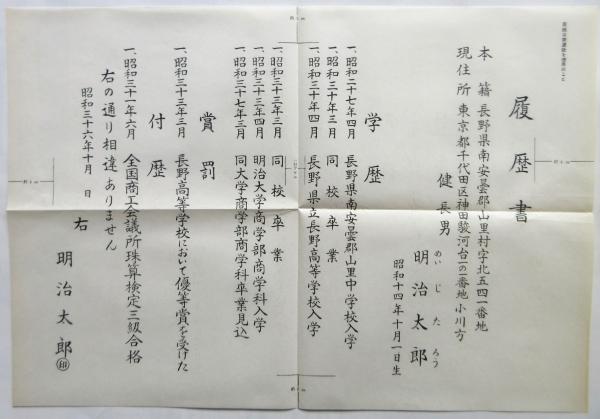 履歴書
本籍 長野県南安曇郡山里村字北五四一番地
現住所 東京都千代田区神田駿河台一の一番地 小川方
健 長男
明治太郎
めいじたろう
昭和十四年十月一日生
学歴
一、昭和二十七年四月 長野県南安曇郡山里中学校入学
一、昭和三十年三月 同校卒業
一、昭和三十年四月 長野県立長野高等学校入学
一、昭和三十三年三月 同校卒業
一、昭和三十三年四月 明治大学商学部商学科入学
一、昭和三十七年三月 同大学商学部商学科卒業見込
賞罰
一、昭和三十三年三月 長野高等学校において優等賞を受けた
付歴
一、昭和三十一年六月 全国商工会議所珠算検定三級合格
右の通り相違ありません
昭和三十六年十月 日
右 明治太郎 印